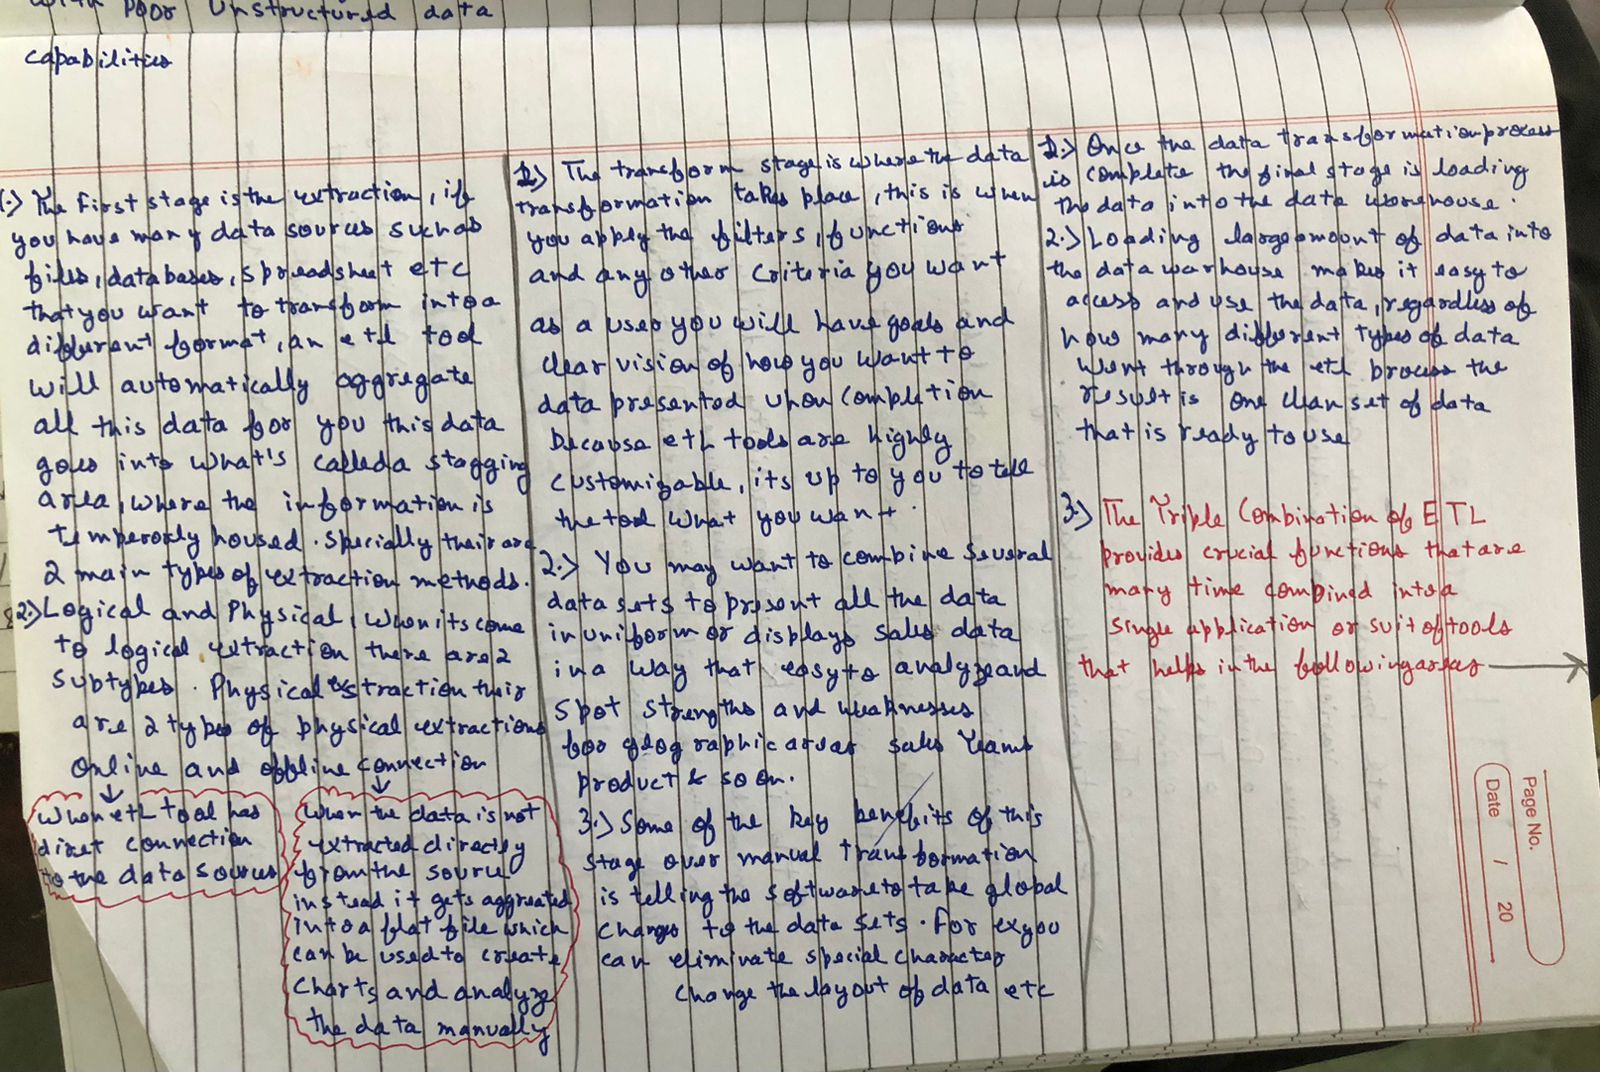 with Poor Unstructured data
capabilities
1.) The First stage is the extraction, if
you have many data sources such as
files, databases, spreadsheet etc
that you want to transform into a
different format, an etl tool
will automatically aggregate
all this data for you this data
goes into what's called a stagging
area, where the information is
temperorly housed. specially their are
2 main types of extraction methods.
2.) Logical and Physical, when its come
to logical extraction there are 2
subtypes. Physical extraction their
are 2 types of physical extractions
online and offline connection
When etL tool has
direct connection
to the data sources
When the data is not
extracted directly
from the source
instead it gets aggreated
into a flat file which
can be used to create
charts and analyze
the data manually
1.) The transform stage is where the data
transformation takes place, this is when
you apply the filters, functions
and any other criteria you want
as a user you will have goals and
clear vision of how you want to
data presented upon completion
because etL tools are highly
customizable, its up to you to tell
the tool what you want.
2.) You may want to combine several
data sets to present all the data
in uniform or displays sales data
in a way that easy to analyze and
spot strengths and weaknesses
for geographic areas sales teams
product & so on.
3.) Some of the key benefits of this
stage over manual transformation
is telling the software to take global
changes to the data sets. For ex you
can eliminate special character
change the layout of data etc
1.) Once the data transformation process
is complete the final stage is loading
the data into the data warehouse.
2.) Loading large amount of data into
the data warhouse makes it easy to
access and use the data, regardless of
how many different types of data
went through the etl process the
result is one clean set of data
that is ready to use
3.) The Triple Combination of ETL
provides crucial functions that are
many time combined into a
single application or suit of tools
that helps in the following areas →
Page No.
Date / 20